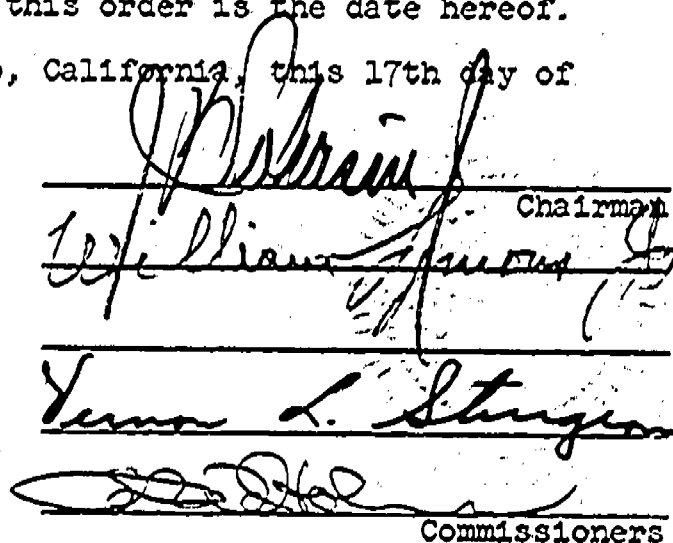 this order is the date hereof.
, California, this 17th day of
Chairman
William Symons Jr
Vernon L. Sturgeon
Commissioners